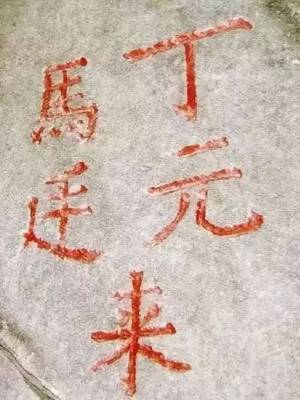 丁元
馬廷
来